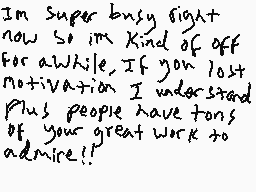 Im super busy right
now so im kind of off
for awhile, If you lost
motivation I understand
Plus people have tons
of your great work to
admire!!